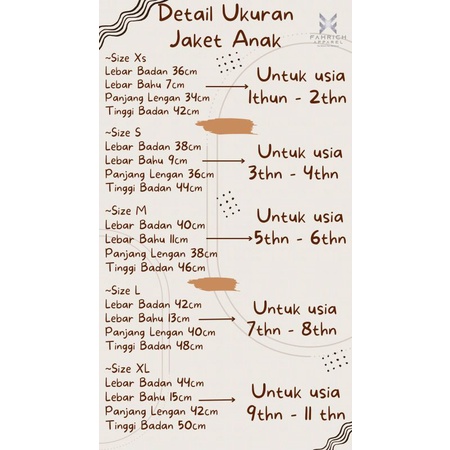 Detail Ukuran
Jaket Anak
FAHRICH
APPAREL
~Size Xs
Lebar Badan 36cm
Lebar Bahu 7cm
Panjang Lengan 34cm
Tinggi Badan 42cm
Untuk usia
1thun - 2thn
~Size S
Lebar Badan 38cm
Lebar Bahu 9cm
Panjang Lengan 36cm
Tinggi Badan 44cm
Untuk usia
3thn - 4thn
~Size M
Lebar Badan 40cm
Lebar Bahu 11cm
Panjang Lengan 38cm
Tinggi Badan 46cm
Untuk usia
5thn - 6thn
~Size L
Lebar Badan 42cm
Lebar Bahu 13cm
Panjang Lengan 40cm
Tinggi Badan 48cm
Untuk usia
7thn - 8thn
~Size XL
Lebar Badan 44cm
Lebar Bahu 15cm
Panjang Lengan 42cm
Tinggi Badan 50cm
Untuk usia
9thn - 11 thn